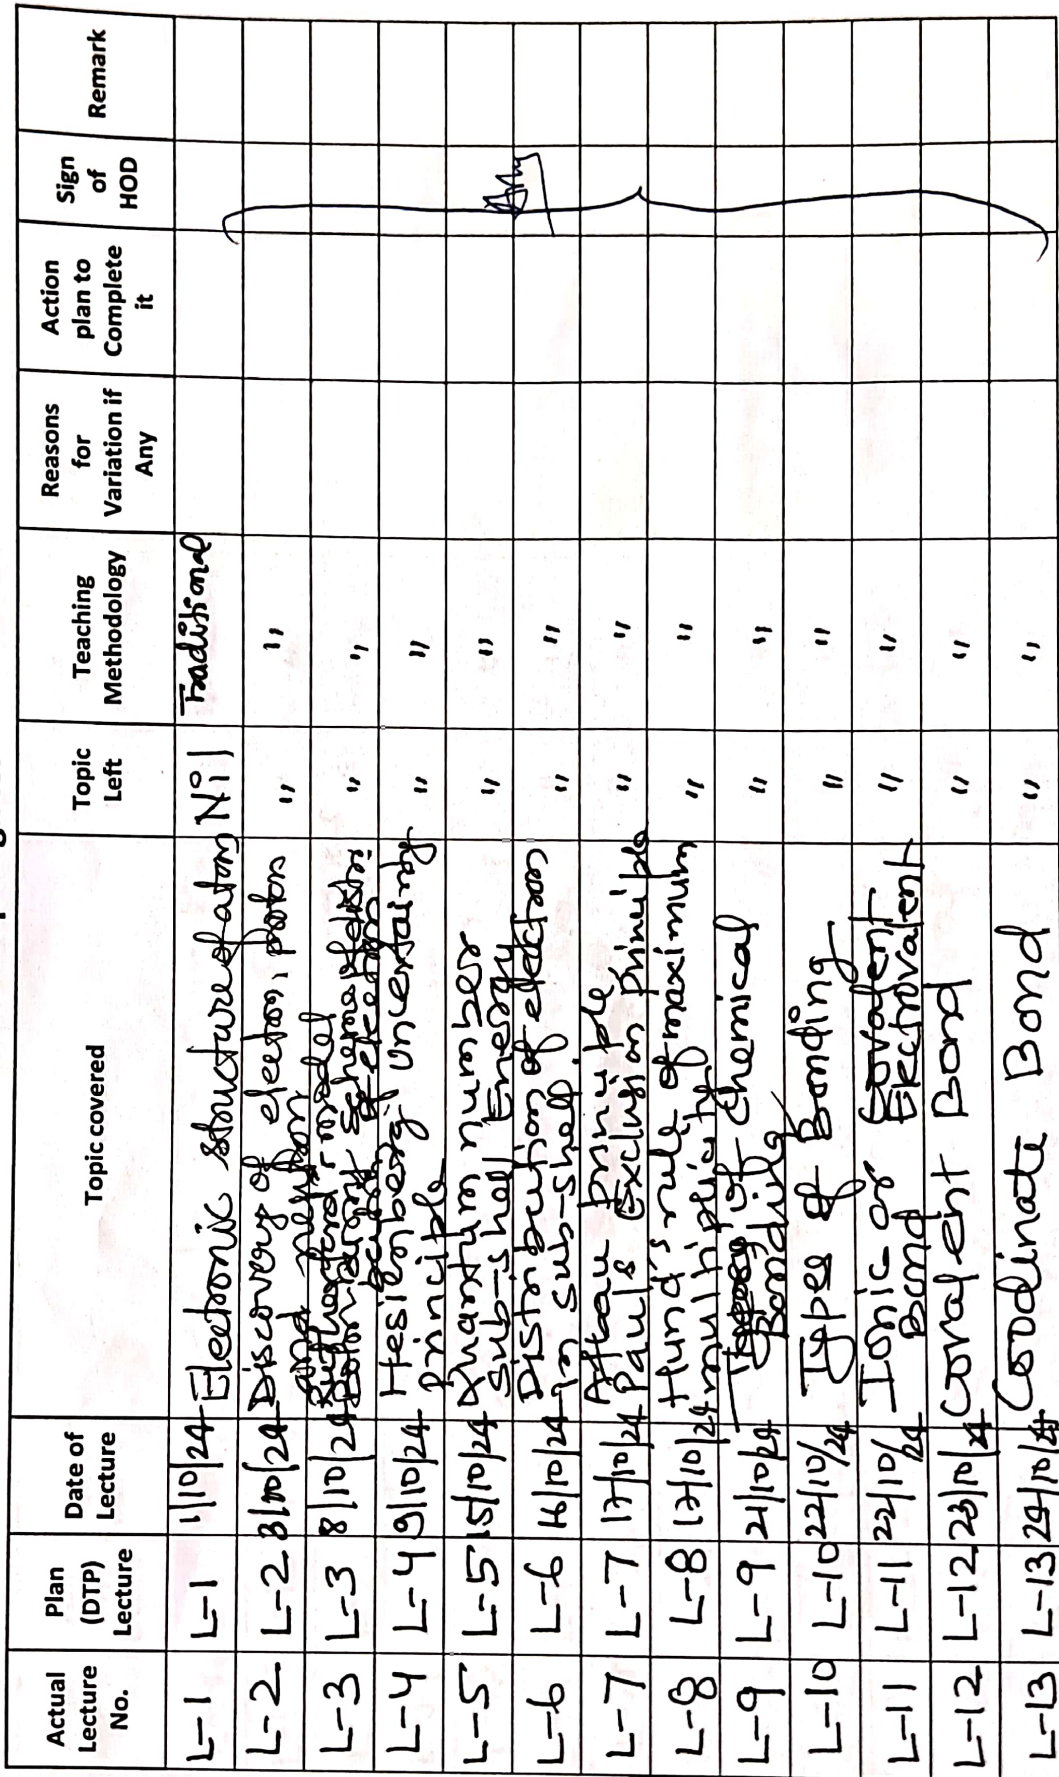 Actual Lecture No. | Plan (DTP) Lecture | Date of Lecture | Topic covered | Topic Left | Teaching Methodology | Reasons for Variation if Any | Action plan to Complete it | Sign of HOD | Remark
L-1 L-1 1/10/24 Electronic structure of atom Nil Traditional
L-2 L-2 3/10/24 Discovery of electron, proton " "
and neutron
L-3 L-3 8/10/24 Rutherford model " "
Bohr
scheme of distri.
of electron
L-4 L-4 9/10/24 Hesignberg Uncertainty " "
principle
L-5 L-5 15/10/24 Quantum number " "
Sub-shell Energy
L-6 L-6 16/10/24 Distribution of electron " "
in sub-shell.
L-7 L-7 17/10/24 Aftau principle " "
Pauls Exclusion principle
L-8 L-8 17/10/24 Hund's rule of maximum " "
multiplicity
L-9 L-9 21/10/24 of Chemical " "
Bonding
L-10 L-10 22/10/24 Types of Bonding " "
L-11 L-11 22/10/24 Ionic or Electrovalent " "
Bond
L-12 L-12 23/10/24 Covalent Bond " "
L-13 L-13 24/10/24 Coodinate Bond " "